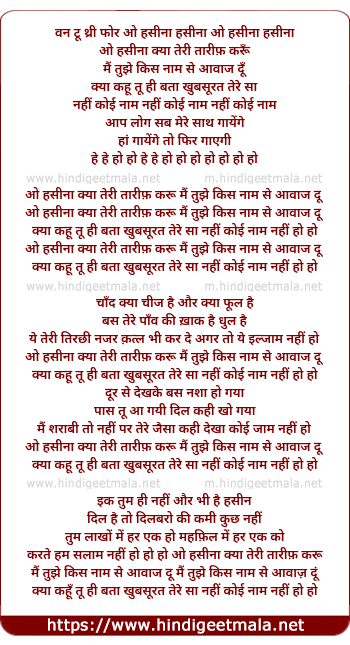 वन टू थ्री फोर ओ हसीना हसीना ओ हसीना हसीना
ओ हसीना क्या तेरी तारीफ़ करूँ
मैं तुझे किस नाम से आवाज दूँ
क्या कहू तू ही बता खुबसूरत तेरे सा
नहीं कोई नाम नहीं कोई नाम नहीं कोई नाम
आप लोग सब मेरे साथ गायेंगे
हां गायेंगे तो फिर गाएगी
हे हे हो हो हे हे हो हो हो हो हो हो हो
www.hindigeetmala.net m.hindigeetmala.net
ओ हसीना क्या तेरी तारीफ़ करू मैं तुझे किस नाम से आवाज दू
ओ हसीना क्या तेरी तारीफ़ करू मैं तुझे किस नाम से आवाज दू
क्या कहू तू ही बता खुबसूरत तेरे सा नहीं कोई नाम नहीं हो हो
ओ हसीना क्या तेरी तारीफ़ करू मैं तुझे किस नाम से आवाज दू
क्या कहू तू ही बता खुबसूरत तेरे सा नहीं कोई नाम नहीं हो हो
www.hindigeetmala.net m.hindigeetmala.net
चाँद क्या चीज है और क्या फूल है
बस तेरे पाँव की ख़ाक है धुल है
ये तेरी तिरछी नजर क़त्ल भी कर दे अगर तो ये इल्जाम नहीं हो
ओ हसीना क्या तेरी तारीफ़ करू मैं तुझे किस नाम से आवाज दू
क्या कहू तू ही बता खुबसूरत तेरे सा नहीं कोई नाम नहीं हो हो
दूर से देखके बस नशा हो गया
पास तू आ गयी दिल कही खो गया
मैं शराबी तो नहीं पर तेरे जैसा कही देखा कोई जाम नहीं हो
ओ हसीना क्या तेरी तारीफ़ करू मैं तुझे किस नाम से आवाज दू
क्या कहू तू ही बता खुबसूरत तेरे सा नहीं कोई नाम नहीं हो हो
www.hindigeetmala.net m.hindigeetmala.net
इक तुम ही नहीं और भी है हसीन
दिल है तो दिलबरो की कमी कुछ नहीं
तुम लाखों में हर एक हो महफ़िल में हर एक को
करते हम सलाम नहीं हो हो हो ओ हसीना क्या तेरी तारीफ़ करू
मैं तुझे किस नाम से आवाज दू मैं तुझे किस नाम से आवाज़ दूं
क्या कहूँ तू ही बता खुबसूरत तेरे सा नहीं कोई नाम नहीं हो हो
https://www.hindigeetmala.net